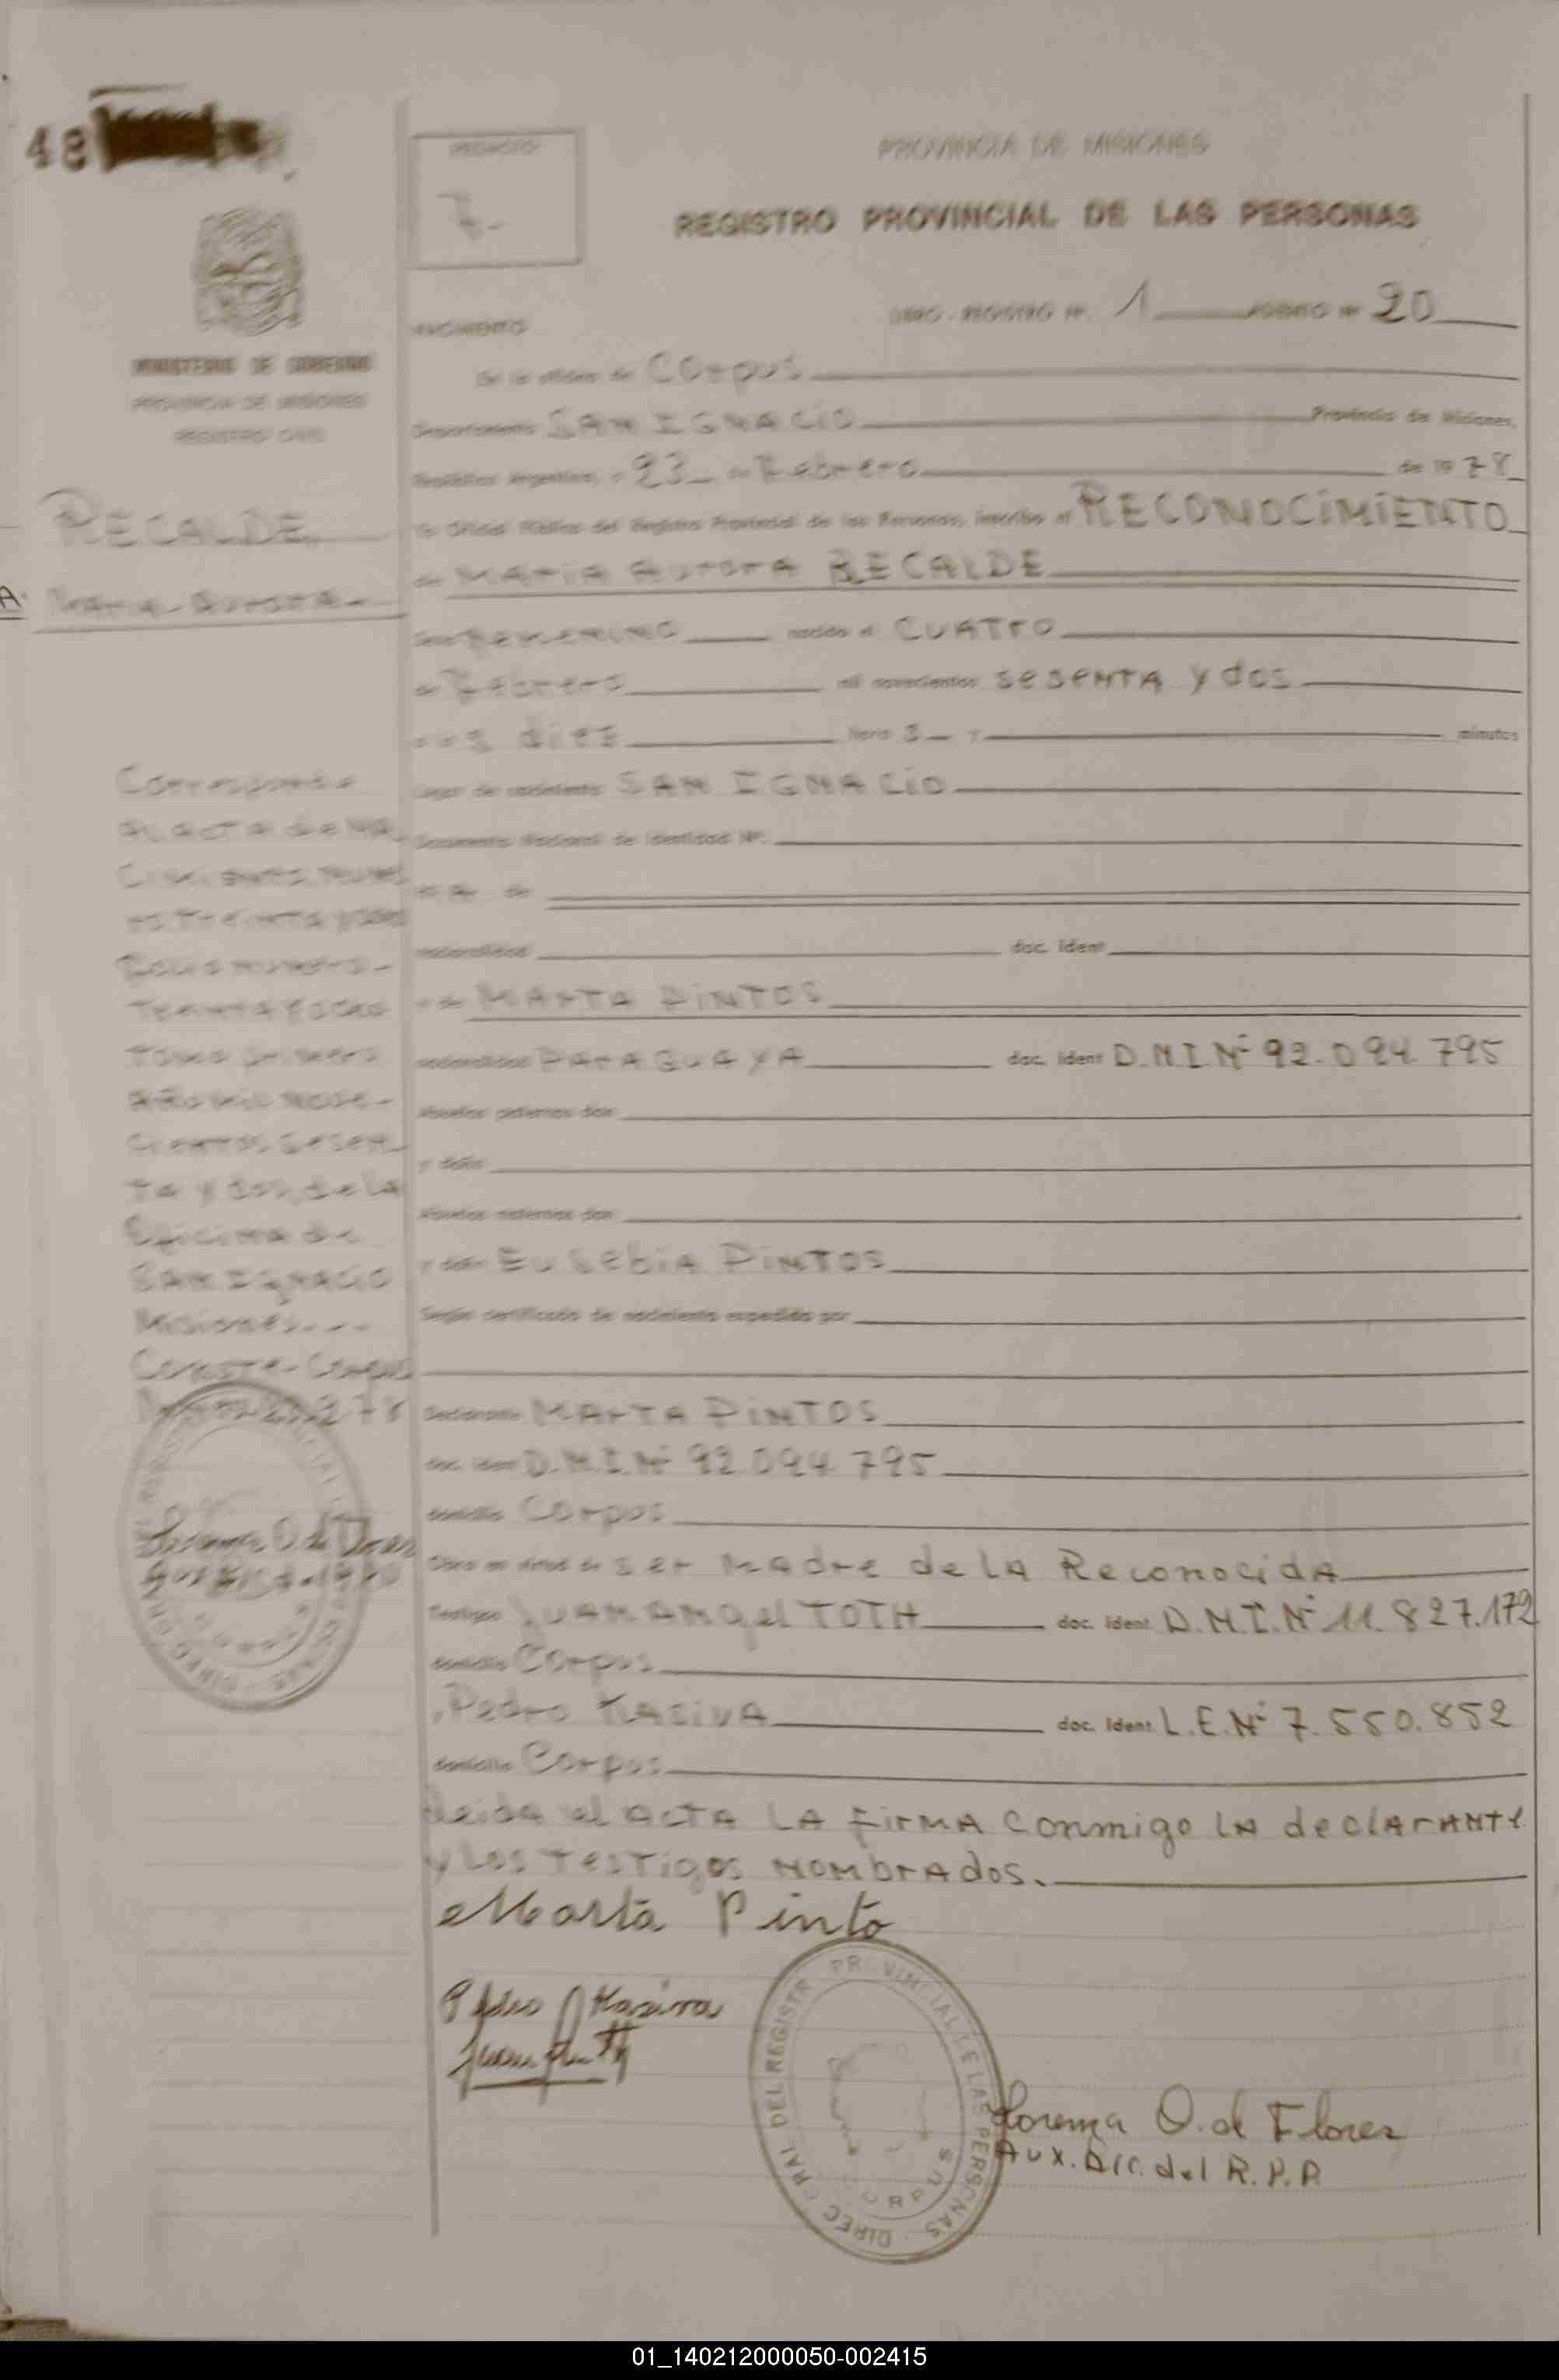 48
7-
PROVINCIA DE MISIONES
REGISTRO PROVINCIAL DE LAS PERSONAS
LIBRO - REGISTRO Nº. 1 Nº 20
NACIMIENTO
MINISTERIO DE GOBIERNO
PROVINCIA DE MISIONES
REGISTRO CIVIL
En la oficina de Corpus
Departamento SAN IGNACIO Provincia de Misiones,
República Argentina, a 23 de Febrero de 1978
Yo Oficial Público del Registro Provincial de las Personas, inscribo el RECONOCIMIENTO
de MARIA AURORA RECALDE
RECALDE
Maria Aurora
A
Sexo FEMENINO nacido el CUATRO
de Febrero mil novecientos sesenta y dos
a las diez hora s y minutos
Lugar de nacimiento SAN IGNACIO
Documento Nacional de Identidad Nº.
nacionalidad doc. ident
y de MARTA PINTOS
nacionalidad PARAGUAYA doc. ident D.N.I. Nº 92.094.795
Abuelos paternos don
y doña
Abuelos maternos don
y doña EUSEBIA PINTOS
Según certificado de nacimiento expedido por
Corresponde
al acta de Na
cimiento Nume
ro Treinta y ocho
Folio numero
Treinta y ocho
Tomo primero
Año mil nove-
cientos sesen
ta y dos, de la
Oficina de
SAN IGNACIO
Misiones---
Conste-Corpus
Declarante MARTA PINTOS
doc. ident D.N.I. Nº 92.094.795
domicilio Corpus
Obra en virtud de ser Madre de la Reconocida
Testigos JUAN ANgel TOTH doc. ident D.N.I. Nº 11.827.172
domicilio Corpus
y Pedro KASIVA doc. ident L.E. Nº 7.550.852
domicilio Corpus
Leida el acta la firma conmigo la declarante
y los testigos nombrados.
Marta Pinto
Pedro Kasiva
DIREC. GRAL DEL REGISTR PROVINCIAL DE LAS PERSONAS
CORPUS
Lorenza O. de Flores
Aux. Dir. del R.P.P.
01_140212000050-002415